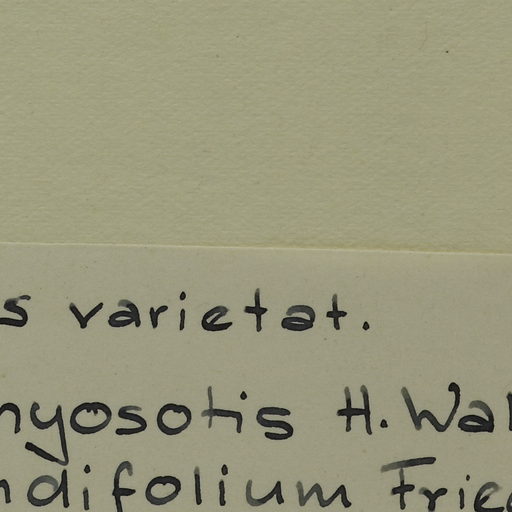 s varietat.
myosotis H. Wal
ndifolium Frie